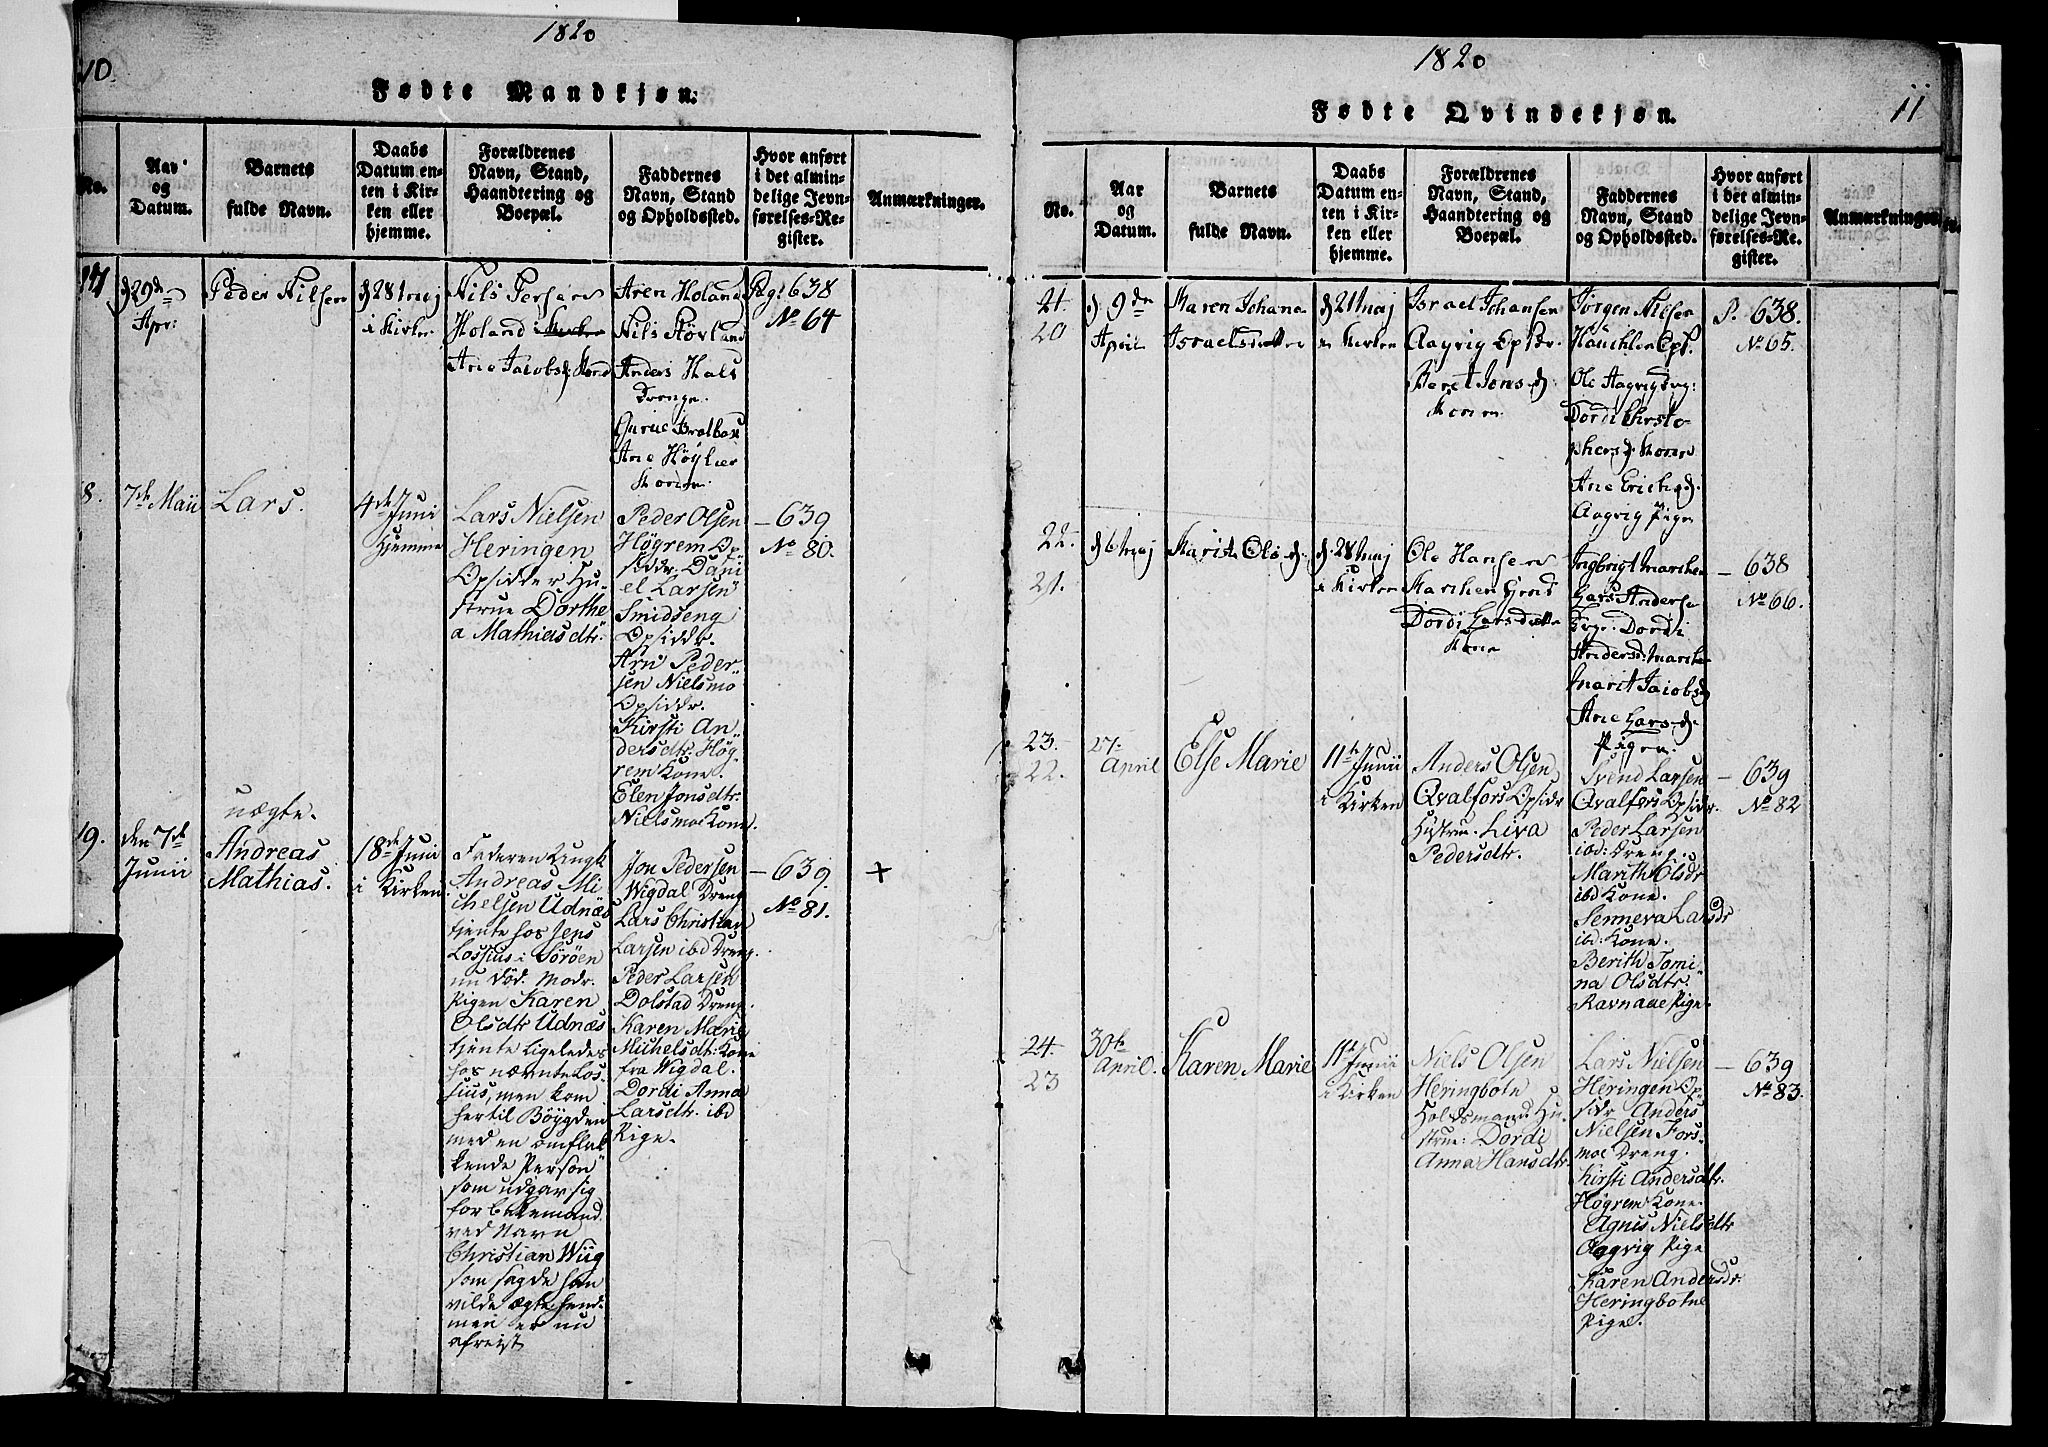 10.
1820
Fødte Mandkjøn.
No.
Aar og Datum.
Barnets fulde Navn.
Daabs Datum enten i Kirken eller hjemme.
Forældrenes Navn, Stand, Haandtering og Boepæl.
Faddernes Navn, Stand og Opholdssted.
Hvor anført i det almindelige Jevnførelses-Register.
Anmærkninger.
d 29de
Apr:
Peder Nilsen
d 28 Maj
i Kirken
Nils Persen
Holand
Ane Jacobsd. Kone
Aren Holand
Nils Støvland
Anders Hals
Drenge.
Ane Høylier
Konen.
Pag: 638
No 64
8.
7de Maii
Lars.
4de Junii
hjemme
Lars Nielsen
Heringen
Opsidder Hu-
strue Dorthe
a Mathiasdtr.
Peder Olsen
Högrem Op-
siddr. Dani
el Larsen
Smidseng
Opsiddr.
Arn Peder-
sen Nielsmo
Opsiddr.
Kirsti An-
dersdtr: Hög-
rem Kone.
Elen Jonsdtr.
Nielsmoe Kone.
— 639
No 80.
9.
den 7de
Junii
uægte.
Andreas
Mathias.
18de Junii
i Kirken
Faderen Ungk.
Andreas Mi
chelsen Udnæs
tjente hos Jens
Lossius i Söröen
nu död. Modr.
Pigen Karen
Olsdtr Udnæs
tjente ligeledes
hos nævnte Los-
sius, men kom
hertil Böygden
med en omflak
kende Person
som udgav sig
for
ved Navn
Christian Wiig
som sagde han
vilde ægte hend.
men er nu
afreist
Jon Pedersen
Wigdal Dreng
Lars Christian
Larsen ibd Dreng.
Peder Larsen
Dolstad Dreng.
Karen Marie
Michelsdt: Kone
fra Wigdal.
Dordi Anna
Larsdtr. ibd
Pige.
— 639.
No 81.
+
1820
11
Fødte Qvindekjøn.
No.
Aar og Datum.
Barnets fulde Navn.
Daabs Datum enten i Kirken eller hjemme.
Forældrenes Navn, Stand, Haandtering og Boepæl.
Faddernes Navn, Stand og Opholdssted.
Hvor anført i det almindelige Jevnførelses-Register.
Anmærkninger.
21.
20
d. 9de
April
Maren Johana
Israelsdatter
d 21 Maj
i Kirken
Israel Johansen
Aagvig Opsdr.
Beret Jonsd.
Konen
Jørgen Nilsen
Ole Aagvig
Dordi Christo
phersd. Kone
Ane Erichsd.
Aagvig Pigen
P. 638.
No 65.
22.
21.
d 6 Maj
Marit Olsd.
d. 28 Maj
i Kirken
Ole Hansen
Marchen
Dordi Larsdatter
Kone
Ingbrigt Marchen
Lars Anderse
Dordi
Andersd: Marche
Marit Jacobsd
Ane Larsd.
Pigen.
— 638
No 66.
23.
22.
27.
April
Else Marie
11te Junii
i Kirken
Anders Olsen
Qvalfors Opsidr
Hustrue. Liva
Pedersdtr.
Svend Larsen
Qvalfors Opsidr.
Peder Larsen
ibd: Dreng.
Marith Olsdr
ibd Kone.
Senneva Larsdr
ibd: Kone.
Berith Tomi-
na Olsdtr.
Ravnaae Pige.
— 639
No 82
24.
23
30te
April.
Karen Marie
11te Junii
i Kirken
Niels Olsen
Heringbotn
Holdsmand Hu-
strue: Dordi
Anna Hansdtr.
Lars Nielsen
Heringen Op-
sidr Anders
Nielsen Fors-
moe Dreng.
Kirsti Andersdtr.
Högrem Kone.
Agnis Nielsdtr
Aagvig Pige
Karen Andersdr.
Heringbotne
Pige.
— 639
No 83.